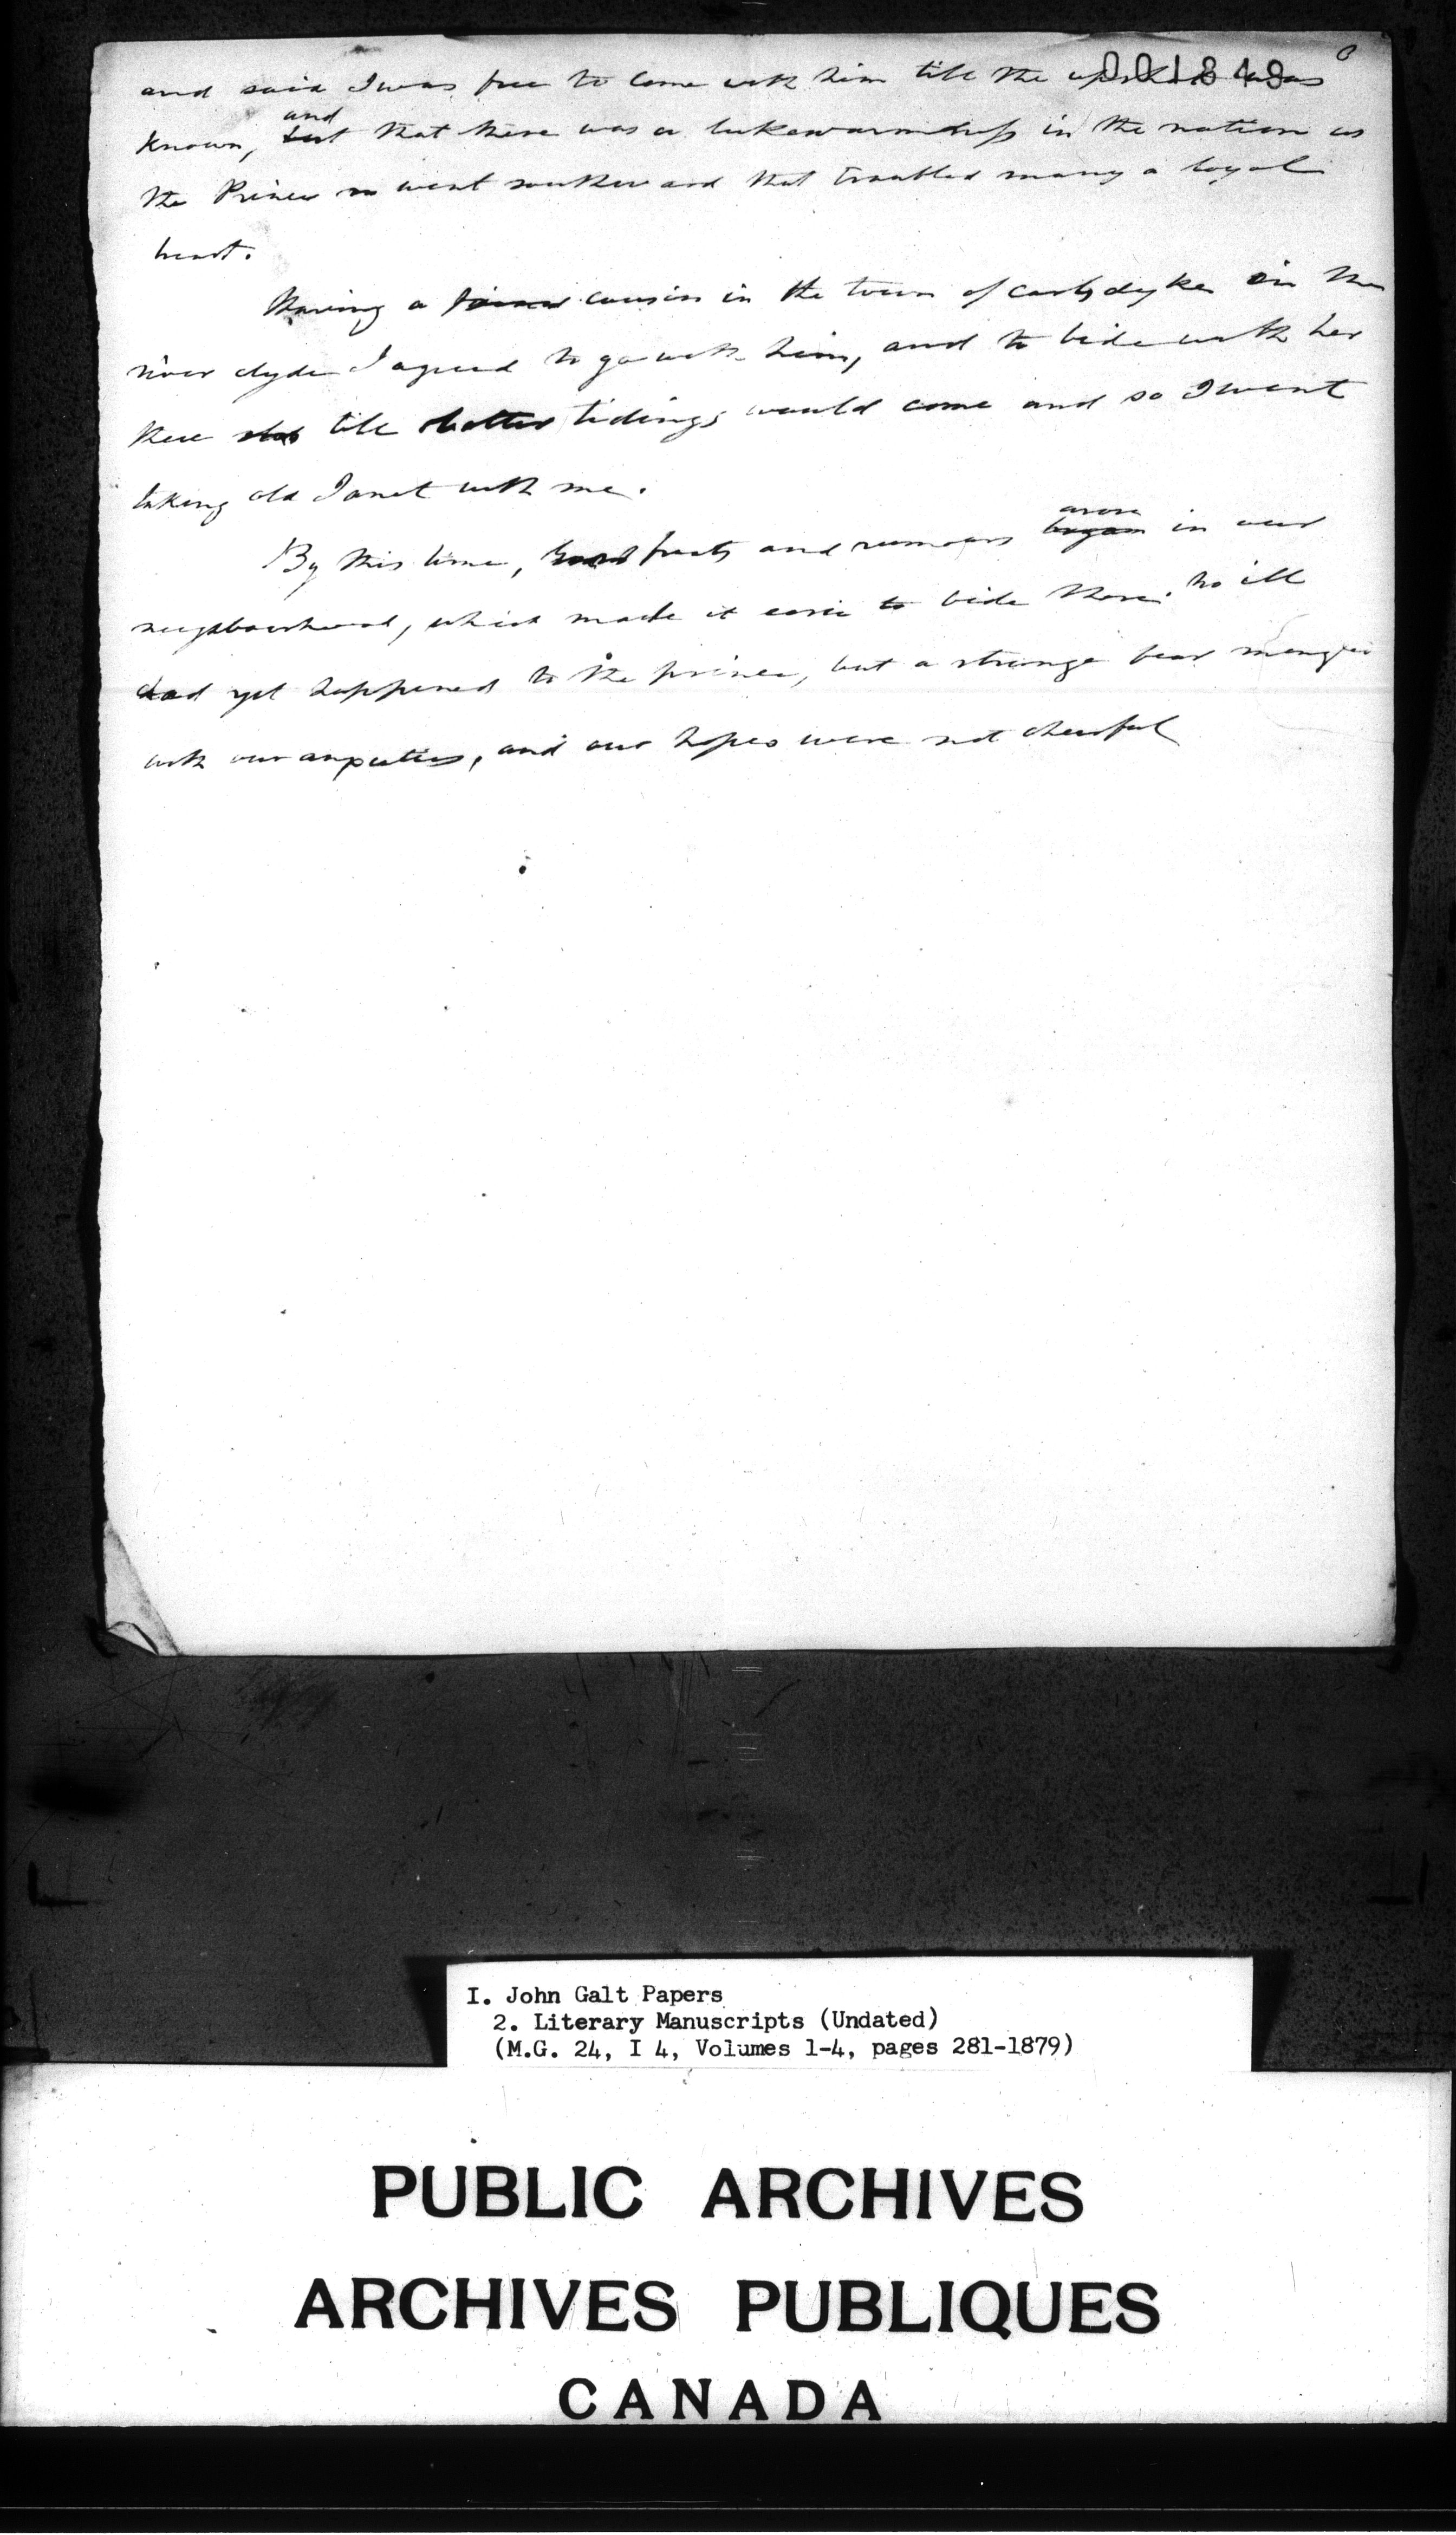 001849
and said I was free to come with him till the upshot was
and
known, but that there was a lukewarmness in the nation as
the Prince went souther and that troubled many a loyal
heart.
Having a friend cousin in the town of Cartsdyke on the
river clyde I agreed to go with him, and to bide with her
there till better tidings would come and so I went
taking old Janet with me.
arose
By this time, frets and rumours began in our
neighbourhood, which made it eerie to bide there. No ill
had yet happened to the prince, but a strange fear mengled
with our anxieties, and our hopes were not chearful
I. John Galt Papers
2. Literary Manuscripts (Undated)
(M.G. 24, I 4, Volumes 1-4, pages 281-1879)
PUBLIC ARCHIVES
ARCHIVES PUBLIQUES
CANADA